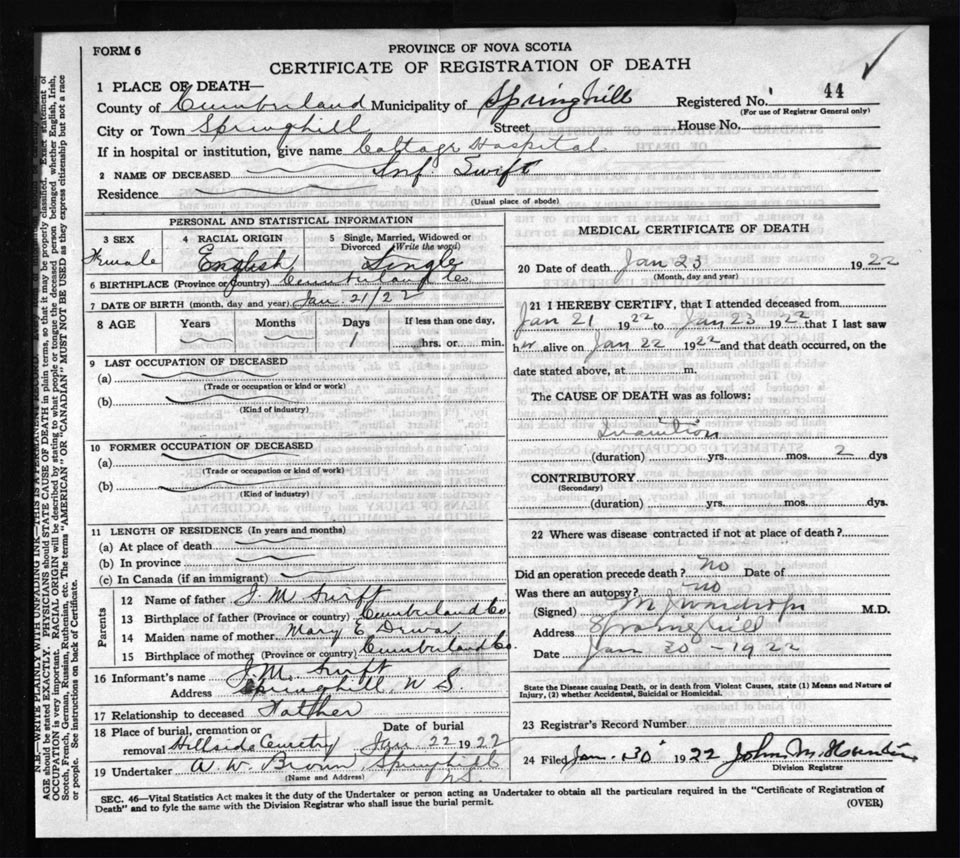 FORM 6
PROVINCE OF NOVA SCOTIA
CERTIFICATE OF REGISTRATION OF DEATH
1 PLACE OF DEATH—
County of Cumberland Municipality of Springhill Registered No. 44
(For use of Registrar General only)
City or Town Springhill Street House No.
If in hospital or institution, give name Cottage Hospital
2 NAME OF DECEASED Inf. Swift
Residence
(Usual place of abode)
PERSONAL AND STATISTICAL INFORMATION
3 SEX 4 RACIAL ORIGIN 5 Single, Married, Widowed or Divorced (Write the word)
Female English Single
6 BIRTHPLACE (Province or Country) Cumberland Co
7 DATE OF BIRTH (month, day and year) Jan. 21/22
8 AGE Years Months Days If less than one day,
1 hrs. or min.
9 LAST OCCUPATION OF DECEASED
(a)
(Trade or occupation or kind or work)
(b)
(Kind of industry)
10 FORMER OCCUPATION OF DECEASED
(a)
(Trade or occupation or kind of work)
(b)
(Kind of industry)
11 LENGTH OF RESIDENCE (In years and months)
(a) At place of death
(b) In province
(c) In Canada (if an immigrant)
Parents
12 Name of father J M Swift
13 Birthplace of father (Province or country) Cumberland Co.
14 Maiden name of mother Mary E
15 Birthplace of mother (Province or country) Cumberland Co.
16 Informant's name J. M. Swift
Address Springhill, N S.
17 Relationship to deceased Father
18 Place of burial, cremation or removal Hillside Cemetry Date of burial Jan 22 1922
19 Undertaker W. W. Brown Springhill N.S.
(Name and Address)
MEDICAL CERTIFICATE OF DEATH
20 Date of death Jan 23 1922
(Month, day and year)
21 I HEREBY CERTIFY, that I attended deceased from
Jan 21 1922 to Jan 23 1922 that I last saw
her alive on Jan 22 1922 and that death occurred, on the
date stated above, at m.
The CAUSE OF DEATH was as follows:
Inanition
(duration) yrs. mos. 2 dys
CONTRIBUTORY
(Secondary)
(duration) yrs. mos. dys.
22 Where was disease contracted if not at place of death?
Did an operation precede death? no Date of
Was there an autopsy? no
(Signed) M.D.
Address Springhill
Date Jan 30 - 1922
State the Disease causing Death, or in death from Violent Causes, state (1) Means and Nature of
Injury, (2) whether Accidental, Suicidal or Homicidal.
23 Registrar's Record Number
24 Filed Jan. 30 1922 John M.
Division Registrar
SEC. 46—Vital Statistics Act makes it the duty of the Undertaker or person acting as Undertaker to obtain all the particulars required in the "Certificate of Registration of
Death" and to fyle the same with the Division Registrar who shall issue the burial permit.
(OVER)
N.B.—WRITE PLAINLY WITH UNFADING INK—THIS IS A PERMANENT RECORD.
AGE should be stated EXACTLY. PHYSICIANS should STATE CAUSE OF DEATH in plain terms, so that it may be properly classified. Exact statement of
OCCUPATION is very important. RACIAL ORIGIN will be described by stating to what people or tongue the deceased person belonged whether English, Irish,
Scotch, French, German, Russian, Ruthenian, etc. The terms "AMERICAN" OR "CANADIAN" MUST NOT BE USED as they express citizenship but not a race
or people. See instructions on back of Certificate.